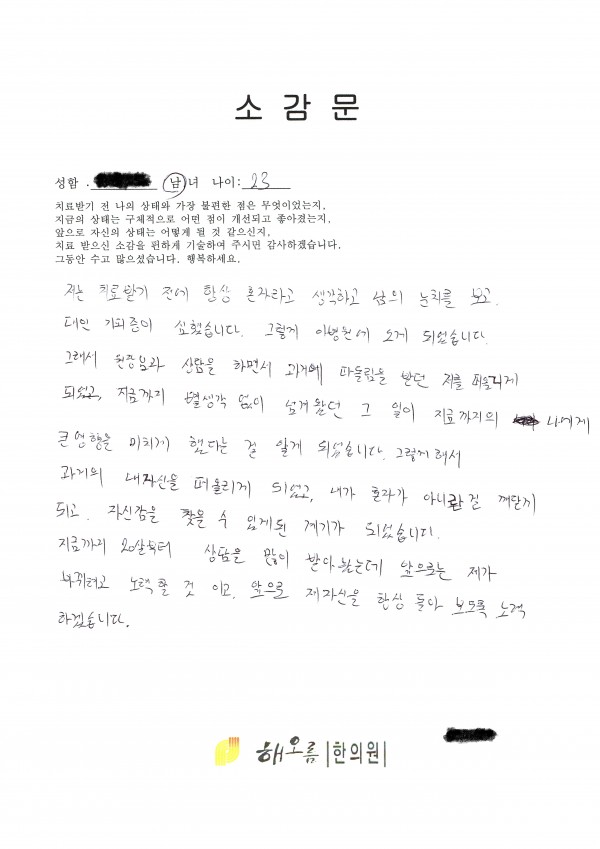 소 감 문
성함 . 남 녀 나이: 23
치료받기 전 나의 상태와 가장 불편한 점은 무엇이었는지.
지금의 상태는 구체적으로 어떤 점이 개선되고 좋아졌는지.
앞으로 자신의 상태는 어떻게 될 것 같으신지.
치료 받으신 소감을 편하게 기술하여 주시면 감사하겠습니다.
그동안 수고 많으셨습니다. 행복하세요.
저는 치료받기 전에 항상 혼자라고 생각하고 남의 눈치를 보고.
대인 기피증이 심했습니다. 그렇게 이병원에 오게 되었습니다.
그래서 원장님과 상담을 하면서 과거에 따돌림을 받던 저를 떠올리게
되었고, 지금까지 별생각 없이 넘겨왔던 그 일이 지금까지의 나에게
큰영향을 미치게 했다는 걸 알게 되었습니다. 그렇게 해서
과거의 내자신을 떠올리게 되었고, 내가 혼자가 아니란걸 깨닫게
되고. 자신감을 찾을 수 있게된 계기가 되었습니다.
지금까지 20살부터 상담을 많이 받아 봤는데 앞으로는 제가
바뀌려고 노력할 것 이고. 앞으로 제자신을 항상 돌아 보도록 노력
하겠습니다.
해오름 |한의원|